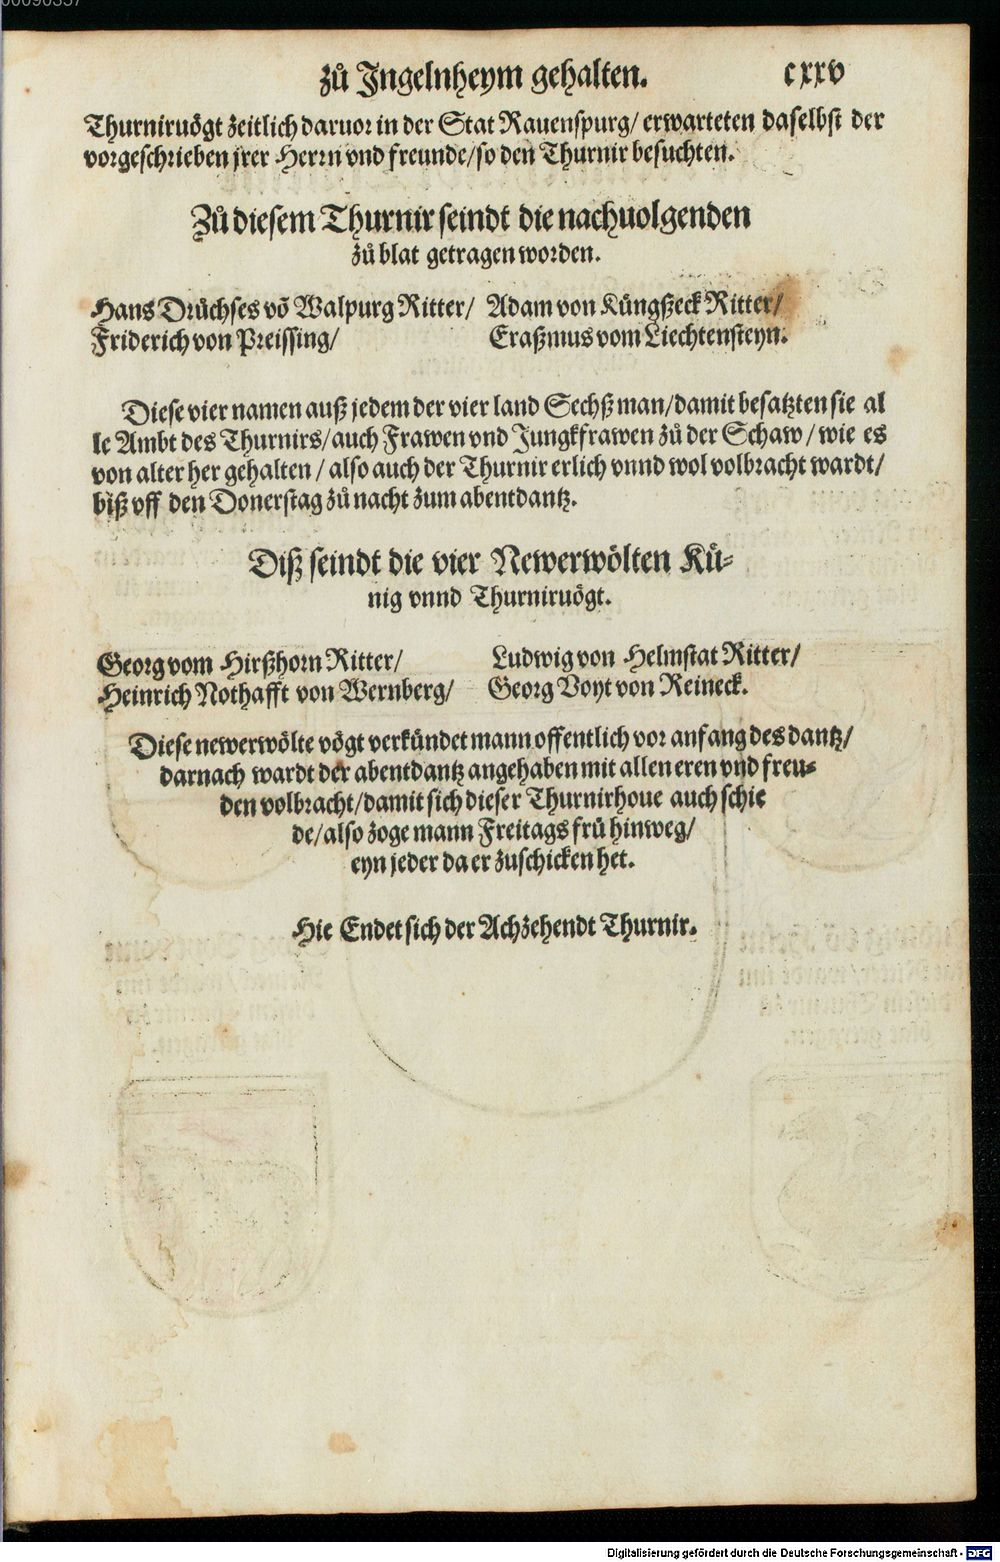 zů Jngelnheym gehalten. cxxv
Thurniruögt zeitlich daruor in der Stat Rauenspurg/ erwarteten daselbst der
vorgeschrieben jrer Herrn vnd freunde/so den Thurnir besuchten.
Zů diesem Thurnir seindt die nachuolgenden
zů blat getragen worden.
Hans Drůchses võ Walpurg Ritter/ Adam von Küngßeck Ritter/
Friderich von Preissing/ Eraßmus vom Liechtensteyn.
Diese vier namen auß jedem der vier land Sechß man/damit besatzten sie al
le Ambt des Thurnirs/auch Frawen vnd Jungkfrawen zů der Schaw/ wie es
von alter her gehalten/ also auch der Thurnir erlich vnnd wol volbracht wardt/
biß vff den Donerstag zů nacht zum abentdantz.
Diß seindt die vier Newerwölten Kü-
nig vnnd Thurniruögt.
Georg vom Hirßhorn Ritter/ Ludwig von Helmstat Ritter/
Heinrich Nothafft von Wernberg/ Georg Voyt von Reineck.
Diese newerwölte vögt verkündet mann offentlich vor anfang des dantz/
darnach wardt der abentdantz angehaben mit allen eren vnd freu-
den volbracht/damit sich dieser Thurnirhoue auch schie
de/also zoge mann Freitags frü hinweg/
eyn jeder da er zuschicken het.
Hie Endet sich der Achzehendt Thurnir.
Digitalisierung gefördert durch die Deutsche Forschungsgemeinschaft - DFG